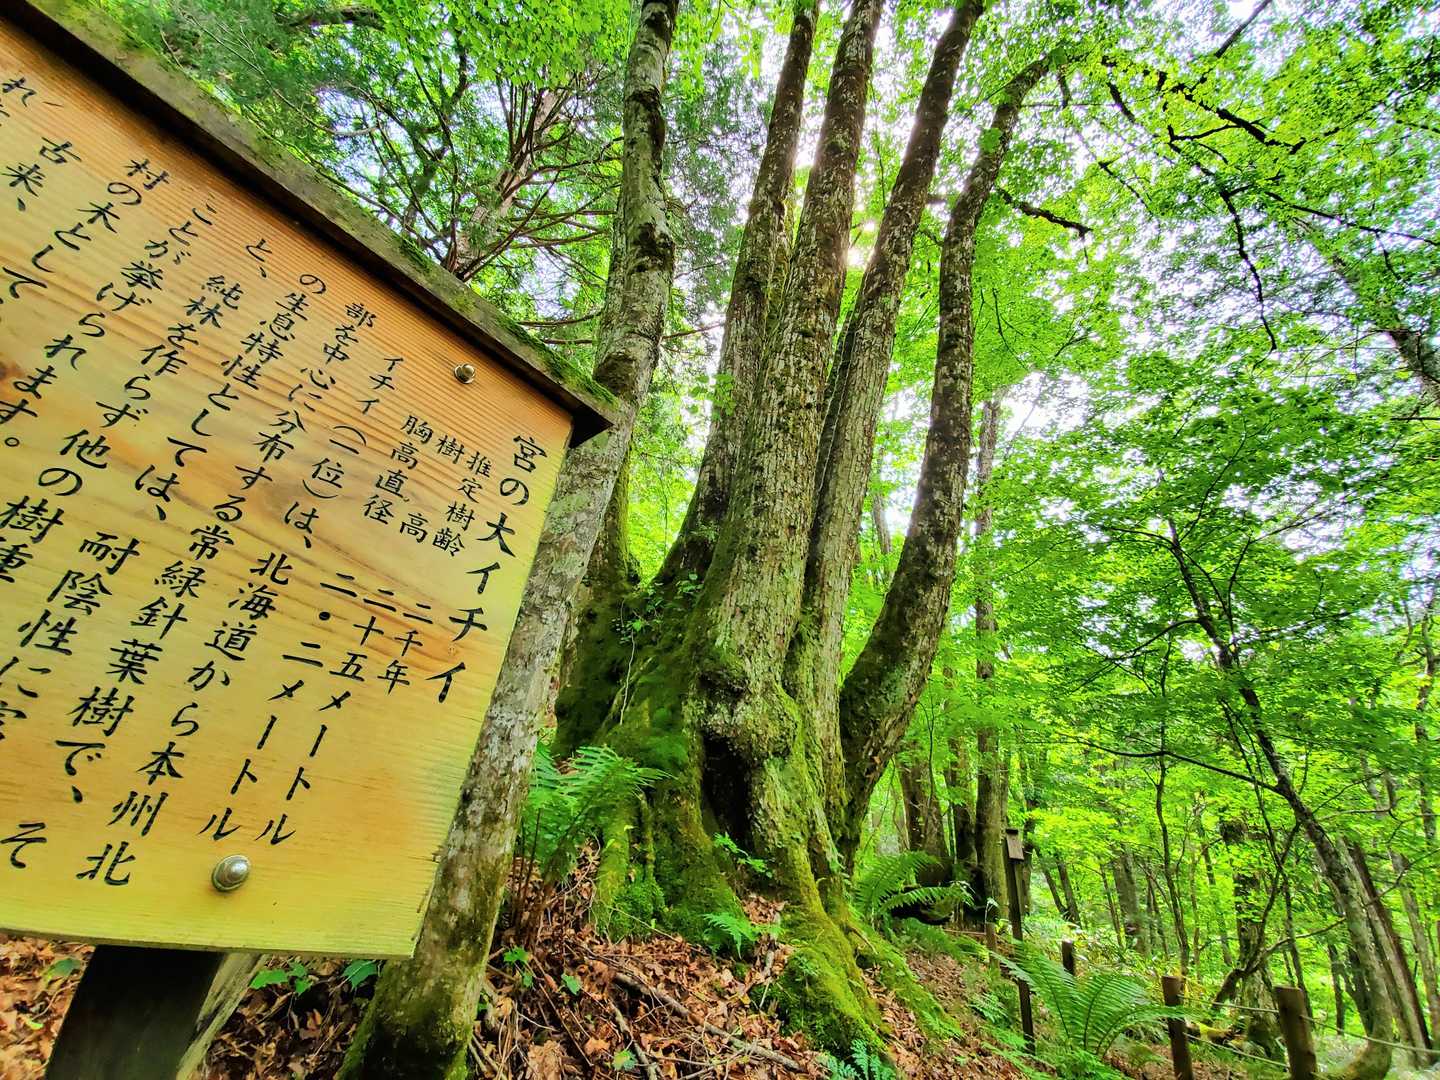 宮の大イチイ
推定樹齢 二千年
樹高 二十五メートル
胸高直径 二・二メートル
イチイ（一位）は、北海道から本州北
部を中心に分布する常緑針葉樹で、そ
の生息特性としては、耐陰性に
と、純林を作らず他の樹種
ことが挙げられます。
村の木として
古来、
れ